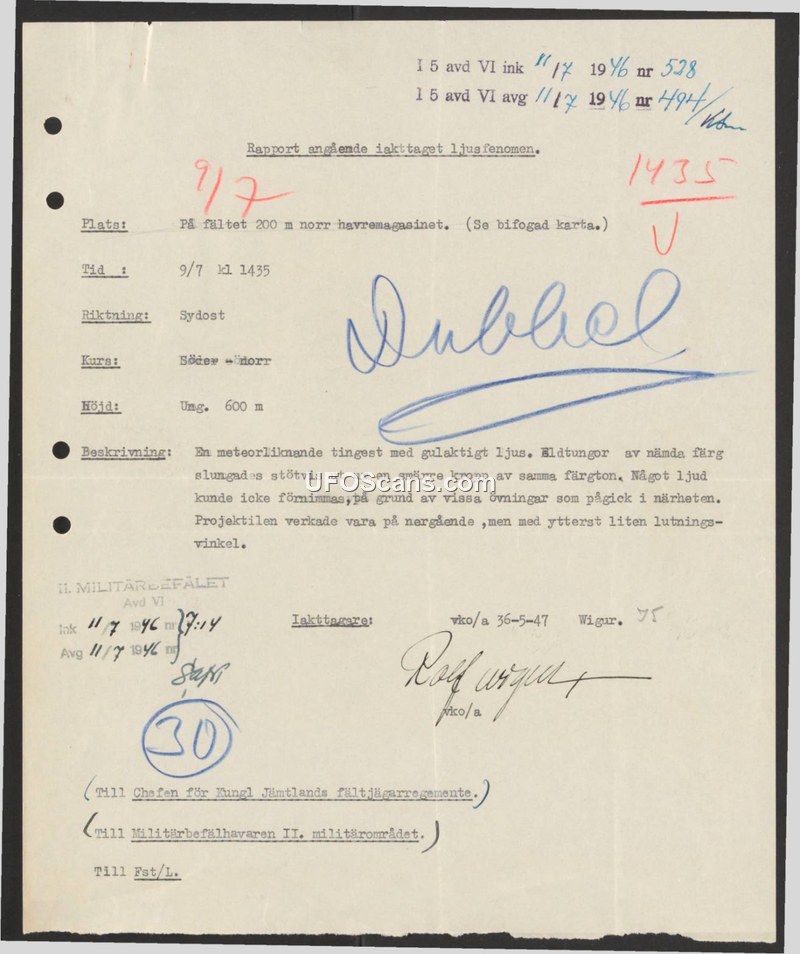 I 5 avd VI ink 11/7 1946 nr 528
I 5 avd VI avg 11/7 1946 nr 494/
Rapport angående iakttaget ljusfenomen.
9/7
1435
Plats: På fältet 200 m norr havremagasinet. (Se bifogad karta.)
Tid : 9/7 kl 1435
Riktning: Sydost
Dubbel
Kurs: Söder - norr
Höjd: Umg. 600 m
Beskrivning: En meteorliknande tingest med gulaktigt ljus. Eldtungor av nämda färg
slungades stötvis en smärre kropp av samma färgton. Något ljud
kunde icke förnimmas, på grund av vissa övningar som pågick i närheten.
Projektilen verkade vara på nergående ,men med ytterst liten lutnings-
vinkel.
UFOScans.com
II. MILITÄRBEFÄLET
Avd VI
Ink 11/7 1946 nr 7:14
Avg 11/7 1946 nr
Iakttagare: vko/a 36-5-47 Wigur. 75
Rolf Wigur
vko/a
30
(Till Chefen för Kungl Jämtlands fältjägarregemente.)
(Till Militärbefälhavaren II. militärområdet.)
Till Fst/L.